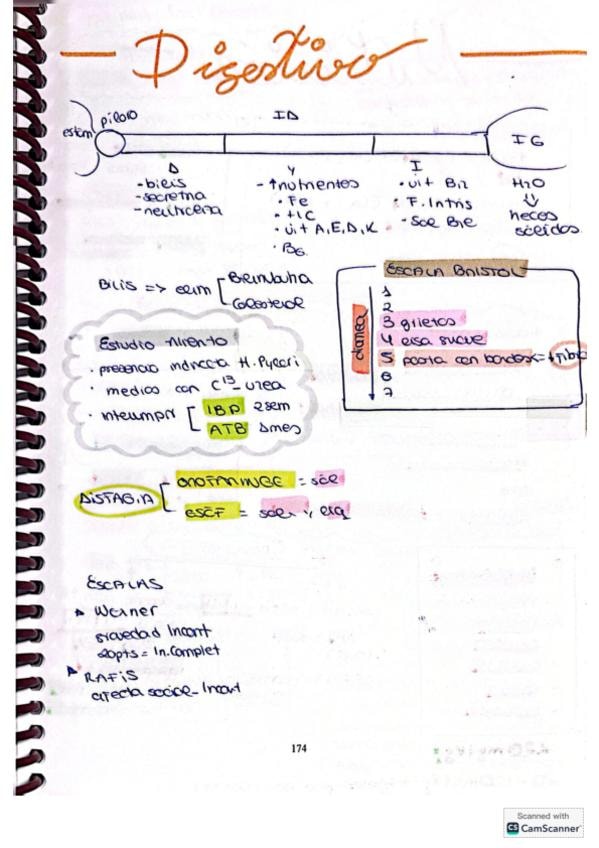 Digestivo
estóm
piloro
ID
IG
D
-bilis
-secretina
Y
-↑nutrientes
• Fe
• vit A,E,D,K
• B6
I
• vit B12
• F. Intrís
H2O
⇓
heces
sólidas
Bilis =>
Bilirrubina
Colesterol
ESCALA BRISTOL
1
2
3 grietas
4 lisa suave
5 pasta con bordes = ↓ fibra
6
7
diarrea
Estudio Aliento
• presencia indirecta H. Pylori
• medios con C13_urea
• interrumpir
IBP 2 sem
ATB 1mes
DISFAGIA
OROFARINGE = sól
ESÓF = sól y líq
ESCALAS
▸ Wexner
gravedad Incont
20pts = In.Complet
▸ RAFIS
afecta social_Incont
174
Scanned with
CS CamScanner